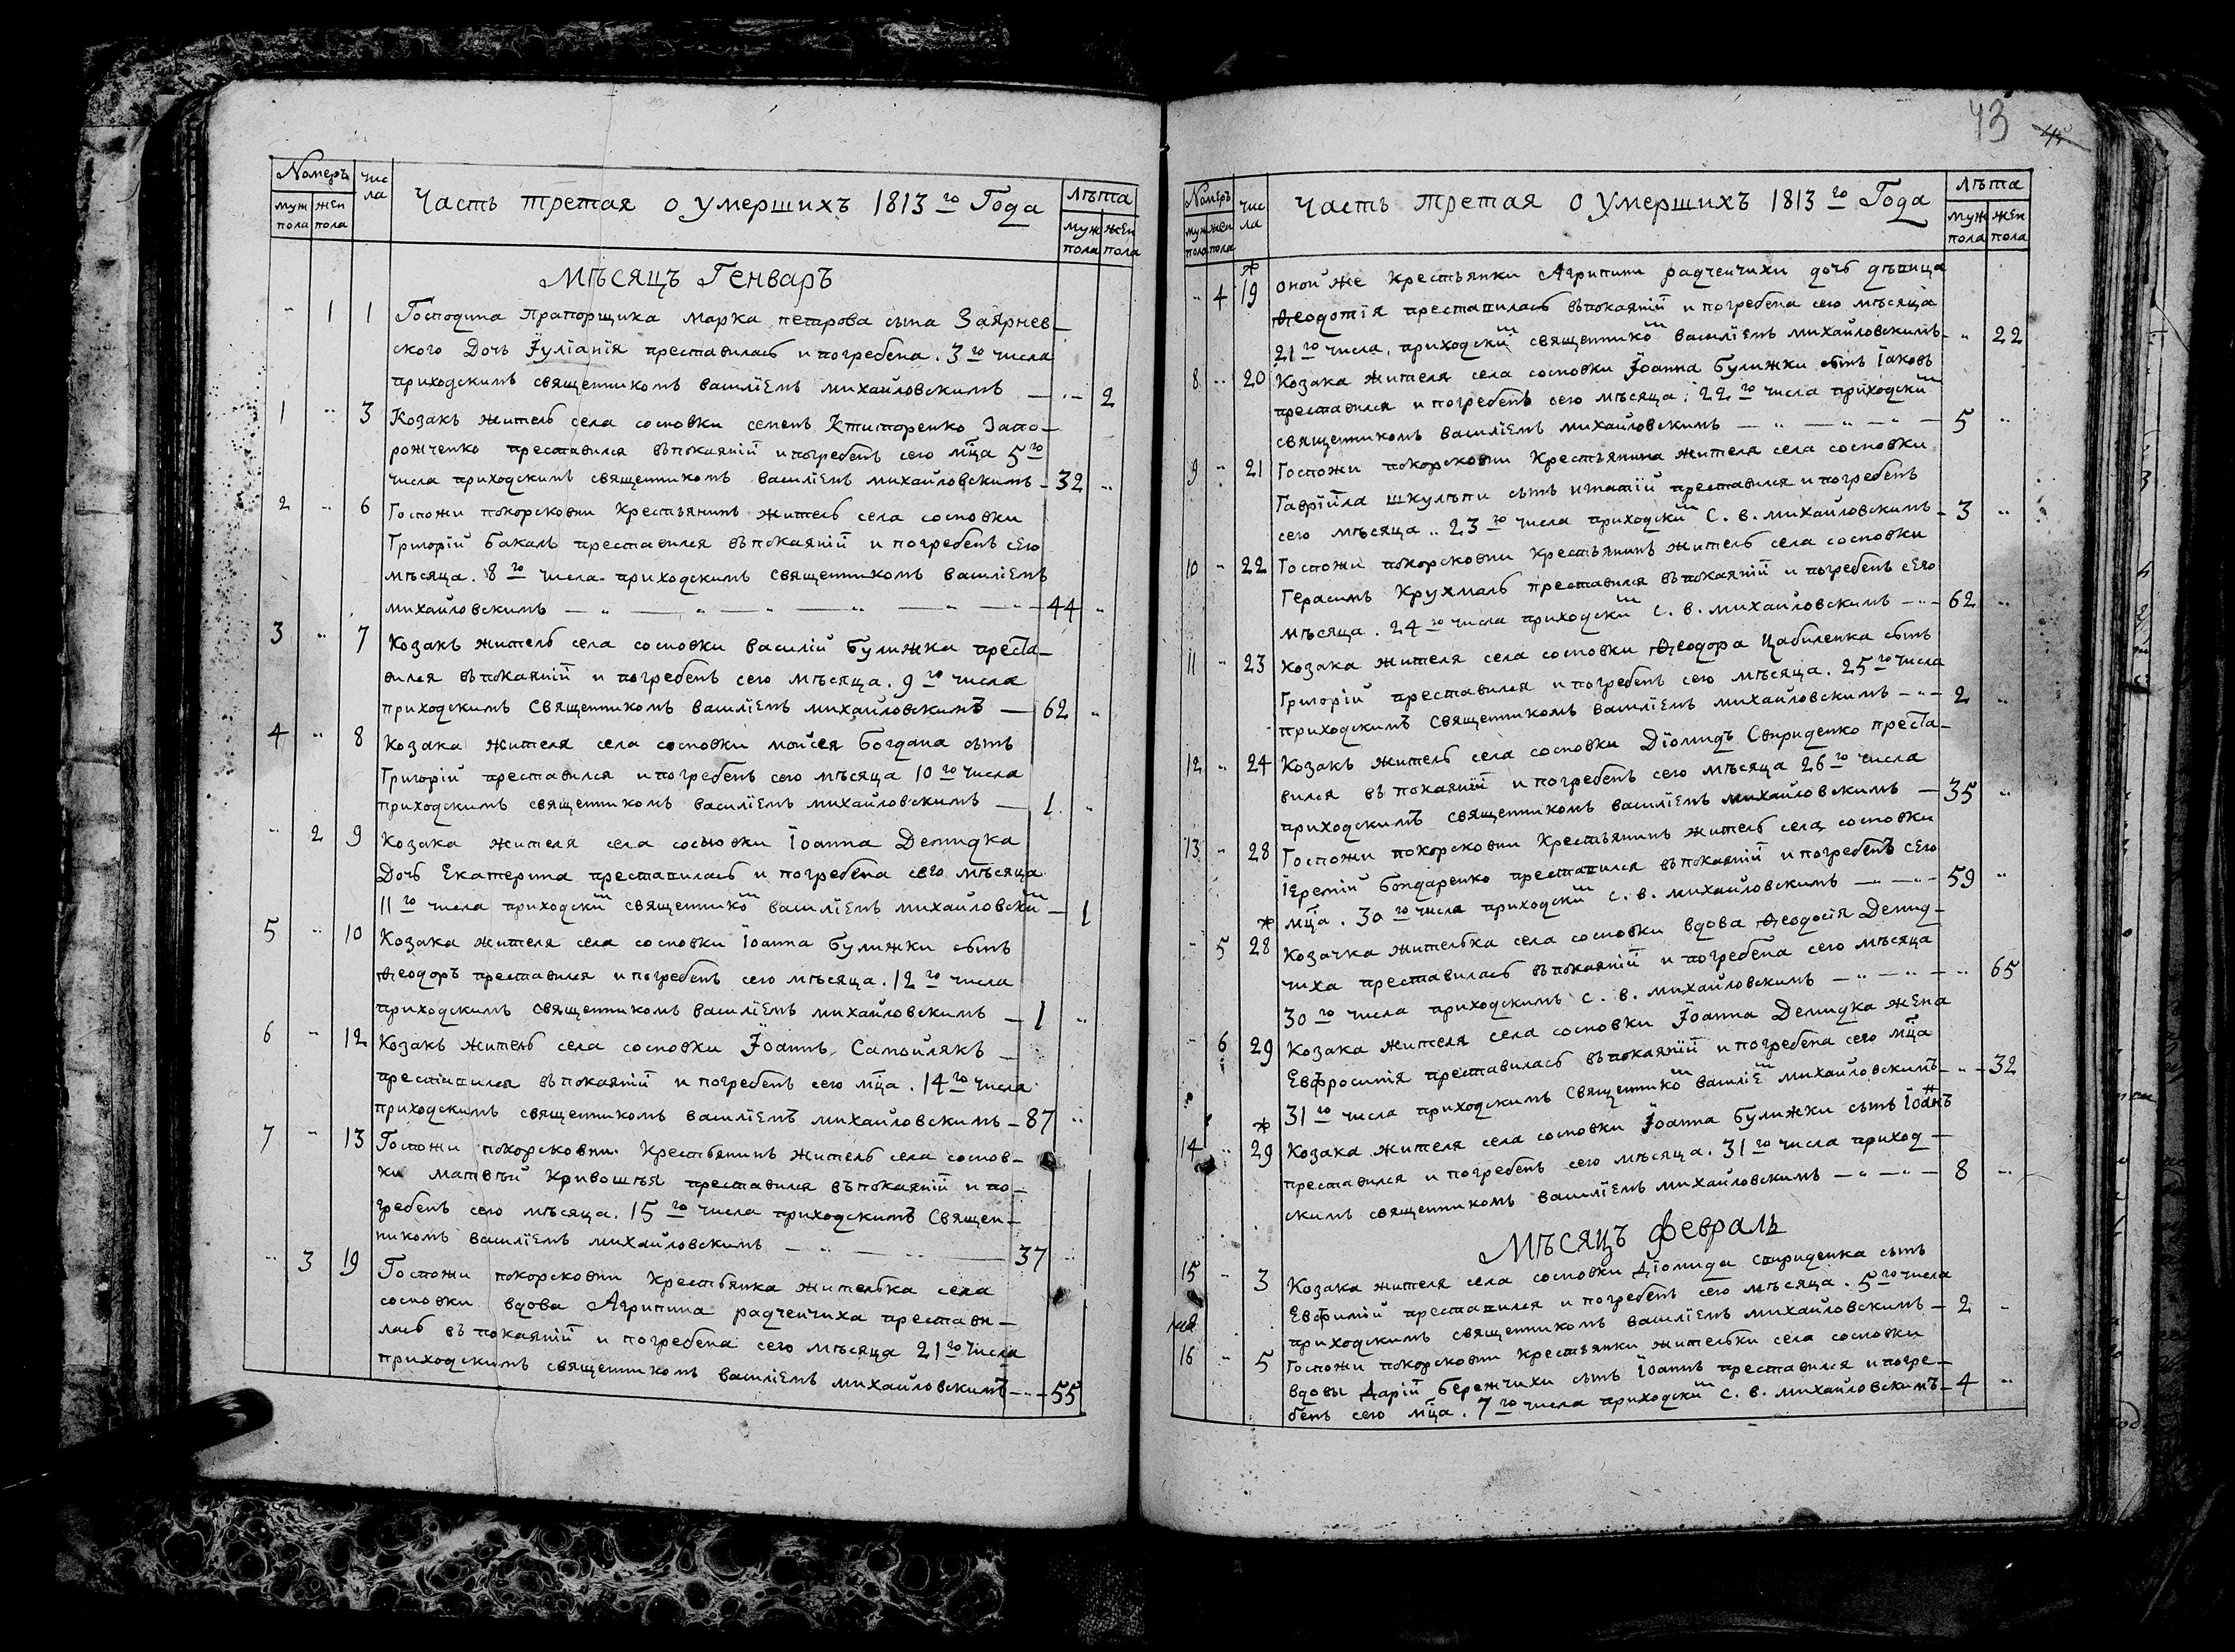 Nомеръ
чис
ла
Часть третая о умершихъ 1813 го Года
лѣта
муж
пола
жен
пола
муж
пола
жен
пола
Мѣсяцъ Генварь
" 1 1 Господина Прапорщика Марка петрова сына Заярнев-
ского Дочь Іуліанія преставилась и погребена. 3 го числа
приходскимъ священникомъ василіемъ михайловскимъ — .. 2
1 " 3 Козакъ житель села сосновки семенъ Ктиторенко Запо-
рожченко преставился въ покаяніи и погребенъ сего мц҃а 5 го
числа приходскимъ священникомъ василіемъ михайловскимъ - 32 "
2 " 6 Госпожи покорсковни Крестьянинъ житель села сосновки
Григорій бакалъ преставился въ покаяніи и погребенъ сего
мѣсяца. 8 го числа приходскимъ священникомъ василіемъ
михайловскимъ — " — " — " — " — " — 44 "
3 " 7 Козакъ житель села сосновки василій булижка преста-
вился въ покаяніи и погребенъ сего мѣсяца. 9 го числа
приходскимъ священникомъ василіемъ михайловскимъ — 62 "
4 " 8 Козака жителя села сосновки моисея богдана сынъ
Григорій преставился и погребенъ сего мѣсяца 10 го числа
приходскимъ священникомъ василіемъ михайловскимъ — 1 "
" 2 9 Козака жителя села сосновки іоанна Демидка
Дочь Екатерина преставилась и погребена сего мѣсяца
11 го числа приходскимъ священникомъ василіемъ михайловским — 1
5 " 10 Козака жителя села сосновки іоанна булижки сынъ
Ѳеодоръ преставился и погребенъ сего мѣсяца. 12 го числа
приходскимъ священникомъ василіемъ михайловскимъ — 1 "
6 " 12 Козакъ житель села сосновки Іоаннъ Самойлякъ —
преставился въ покаяніи и погребенъ сего мц҃а. 14 го числа
приходскимъ священникомъ василіемъ михайловскимъ - 87 "
7 " 13 Госпожи покорсковни Крестьянинъ житель села соснов-
ки матвѣй Кривошѣя преставился въ покаяніи и по-
гребенъ сего мѣсяца. 15 го числа приходскимъ священ-
никомъ василіемъ михайловскимъ — " — " — 37 "
" 3 19 Госпожи покорсковни Крестьянка жителька села
сосновки вдова Агрипина радченчиха престави-
лась въ покаяніи и погребена сего мѣсяца 21 го числа
приходскимъ священникомъ василіемъ михайловскимъ - .. - 55
43
Nомеръ
чис
ла
Часть третая о умершихъ 1813 го Года
лѣта
муж
пола
жен
пола
муж
пола
жен
пола
" 4 19 оной же Крестьянки Агрипини радченчихи дочь дѣвица
Ѳеодотія преставилась въ покаяніи и погребена сего мѣсяца
21 го числа, приходскимъ священникомъ василіемъ михайловскимъ - " 22
8 " 20 Козака жителя села сосновки Іоанна булижки сынъ іаковъ
преставился и погребенъ сего мѣсяца. 22 го числа приходским
священникомъ василіемъ михайловскимъ — " — " — " — 5 "
9 " 21 Госпожи покорсковни Крестьянина жителя села сосновки
Гавріила шкулѣпи сынъ игнатій преставился и погребенъ
сего мѣсяца.. 23 го числа приходским с. в. михайловскимъ - 3 "
10 " 22 Госпожи покорсковни Крестьянинъ житель села сосновки
Герасимъ Крухмаль преставился въ покаяніи и погребенъ сего
мѣсяца. 24 го числа приходским с. в. михайловскимъ — " — 62 "
11 " 23 Козака жителя села сосновки Ѳеодора Цабиленка сынъ
Григорій преставился и погребенъ сего мѣсяца. 25 го числа
приходскимъ священникомъ василіемъ михайловскимъ — " — 2 "
12 " 24 Козакъ житель села сосновки Діомидъ Свириденко преста-
вился въ покаяніи и погребенъ сего мѣсяца 26 го числа
приходскимъ священникомъ василіемъ михайловскимъ — 35 "
13 " 28 Госпожи покорсковни Крестьянинъ житель села сосновки
Іеремій бондаренко преставился въ покаяніи и погребенъ сего
мц҃а. 30 го числа приходским с. в. михайловскимъ — " — " — 59 "
" 5 28 Козачка жителька села сосновки вдова Ѳеодосія Демид-
чиха преставилась въ покаяніи и погребена сего мѣсяца
30 го числа приходскимъ с. в. михайловскимъ — " — " — " 65
" 6 29 Козака жителя села сосновки Іоанна Демидка жена
Евфросинія преставилась въ покаяніи и погребена сего мц҃а
31 го числа приходскимъ священником василіем михайловскимъ - " - 32
14 " 29 Козака жителя села сосновки Іоанна булижки сынъ Іоаннъ
преставился и погребенъ сего мѣсяца. 31 го числа приход-
скимъ священникомъ василіемъ михайловскимъ — " — " — 8 "
Мѣсяцъ февраль
15 " 3 Козака жителя села сосновки Діомида свириденка сынъ
Евфимій преставился и погребенъ сего мѣсяца. 5 го числа
приходскимъ священникомъ василіемъ михайловскимъ - 2 "
16 " 5 Госпожи покорсковни Крестьянки жительки села сосновки
вдовы Дарій бережчихи сынъ Іоаннъ преставился и погре-
бенъ сего мц҃а. 7 го числа приходским с. в. михайловскимъ - 4 "